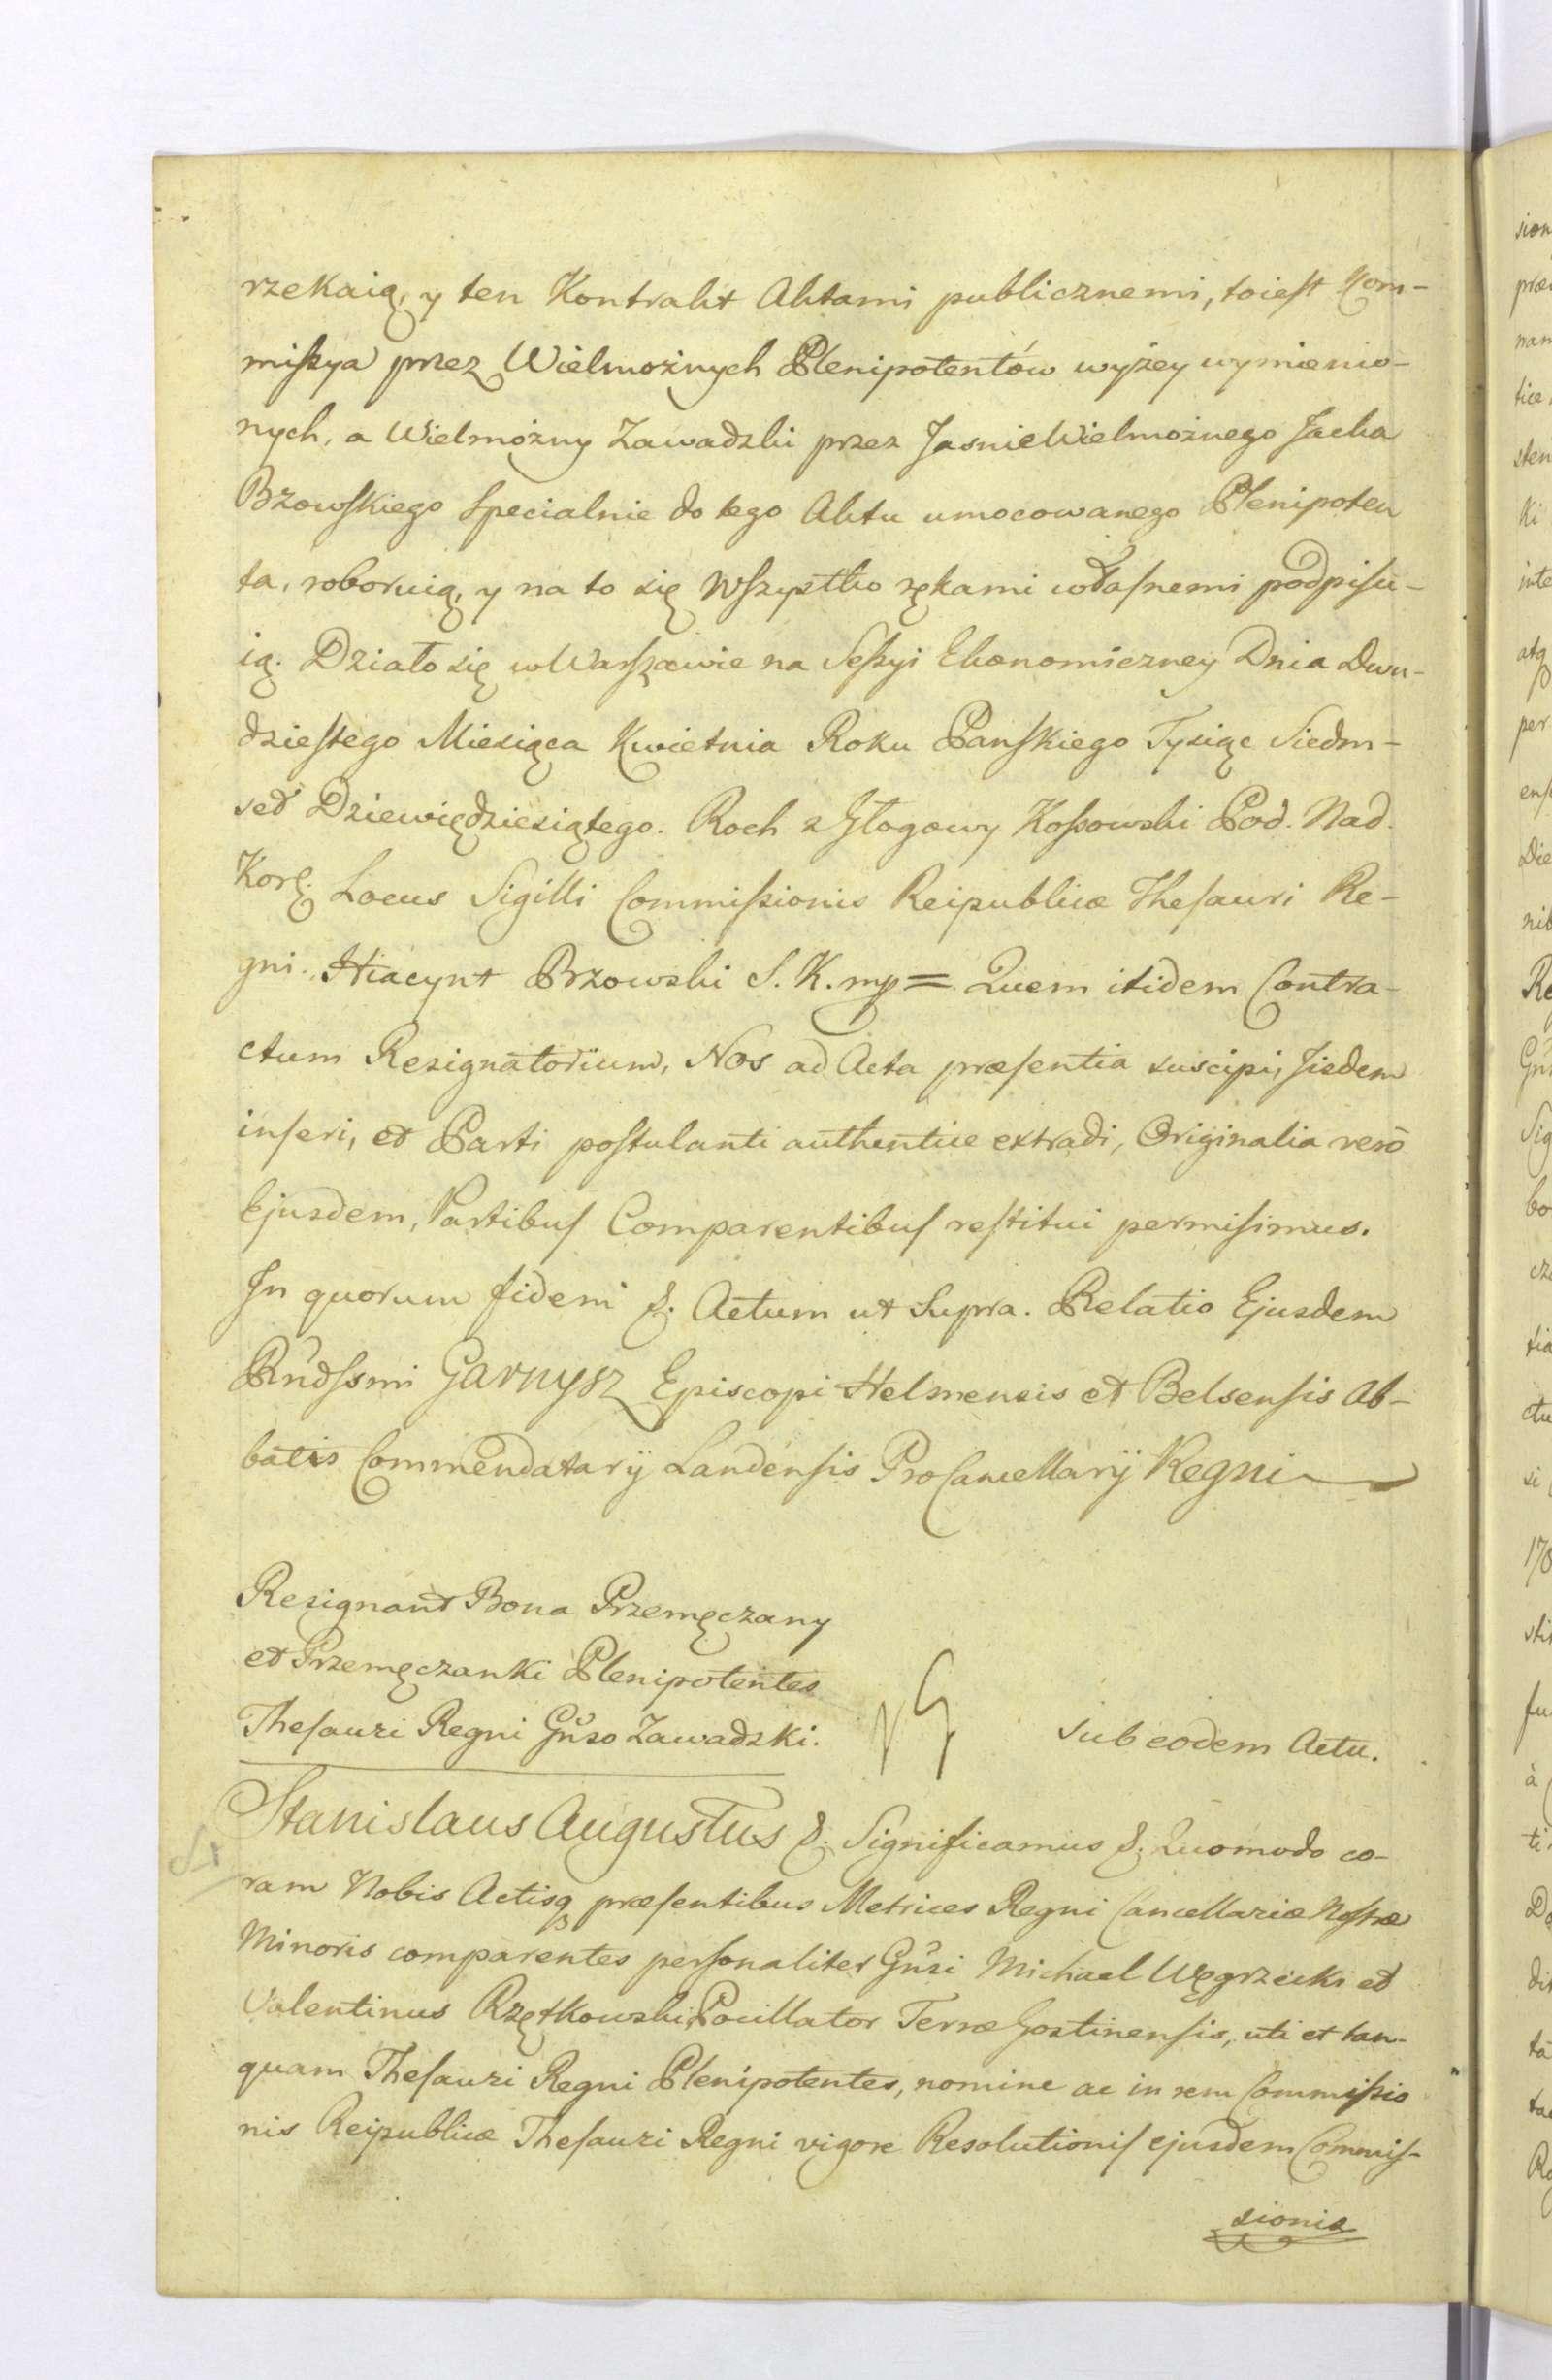 rzekaią, y ten Kontrakt Aktami publicznemi, toiest Kom-
missya przez Wielmożnych Plenipotentów wyżey wymienio-
nych, a Wielmożny Zawadzki przez JasnieWielmożnego Jacka
Bzowskiego specialnie do tego Aktu umocowanego Plenipoten
ta, roboruią, y na to się wszystko rękami własnemi podpisu-
ią. Działo się w Warszawie na Sessyi Ekonomiczney Dnia Dwu-
dziestego Miesiąca Kwietnia Roku Panskiego Tysiąc Siedm-
set Dziewiędziesiątego. Roch z Głogowy Kossowski Pod. Nad.
Kor. Locus Sigilli Commissionis Reipublicæ Thesauri Re-
gni. Hiacynt Bzowski S. K. mp = Quem itidem Contra-
ctum Resignatorium, Nos ad Acta præsentia suscipi, Jisdem
inseri, et Parti postulanti authentice extradi, Originalia verò
Ejusdem, Partibus Comparentibus restitui permisimus.
In quorum fidem &. Actum ut Supra. Relatio Ejusdem
Rndssmi Garnysz Episcopi Helmensis et Belsensis Ab-
batis Commendatarij Landensis ProCancellarij Regni
Resignant Bona Przemęczany
et Przemęczanki Plenipotentes
Thesauri Regni Gnso Zawadzki.
sub eodem Actu.
Stanislaus Augustus &. Significamus &. Quomodo co-
ram Nobis Actisq præsentibus Metrices Regni Cancellariæ Nostræ
Minoris comparentes personaliter Gnsi Michael Węgrzecki et
Valentinus Rzętkowski Pocillator Terræ Gostinensis, uti et tan-
quam Thesauri Regni Plenipotentes, nomine ac in rem Commissio
nis Reipublicæ Thesauri Regni vigore Resolutionis ejusdem Commis-
sionis